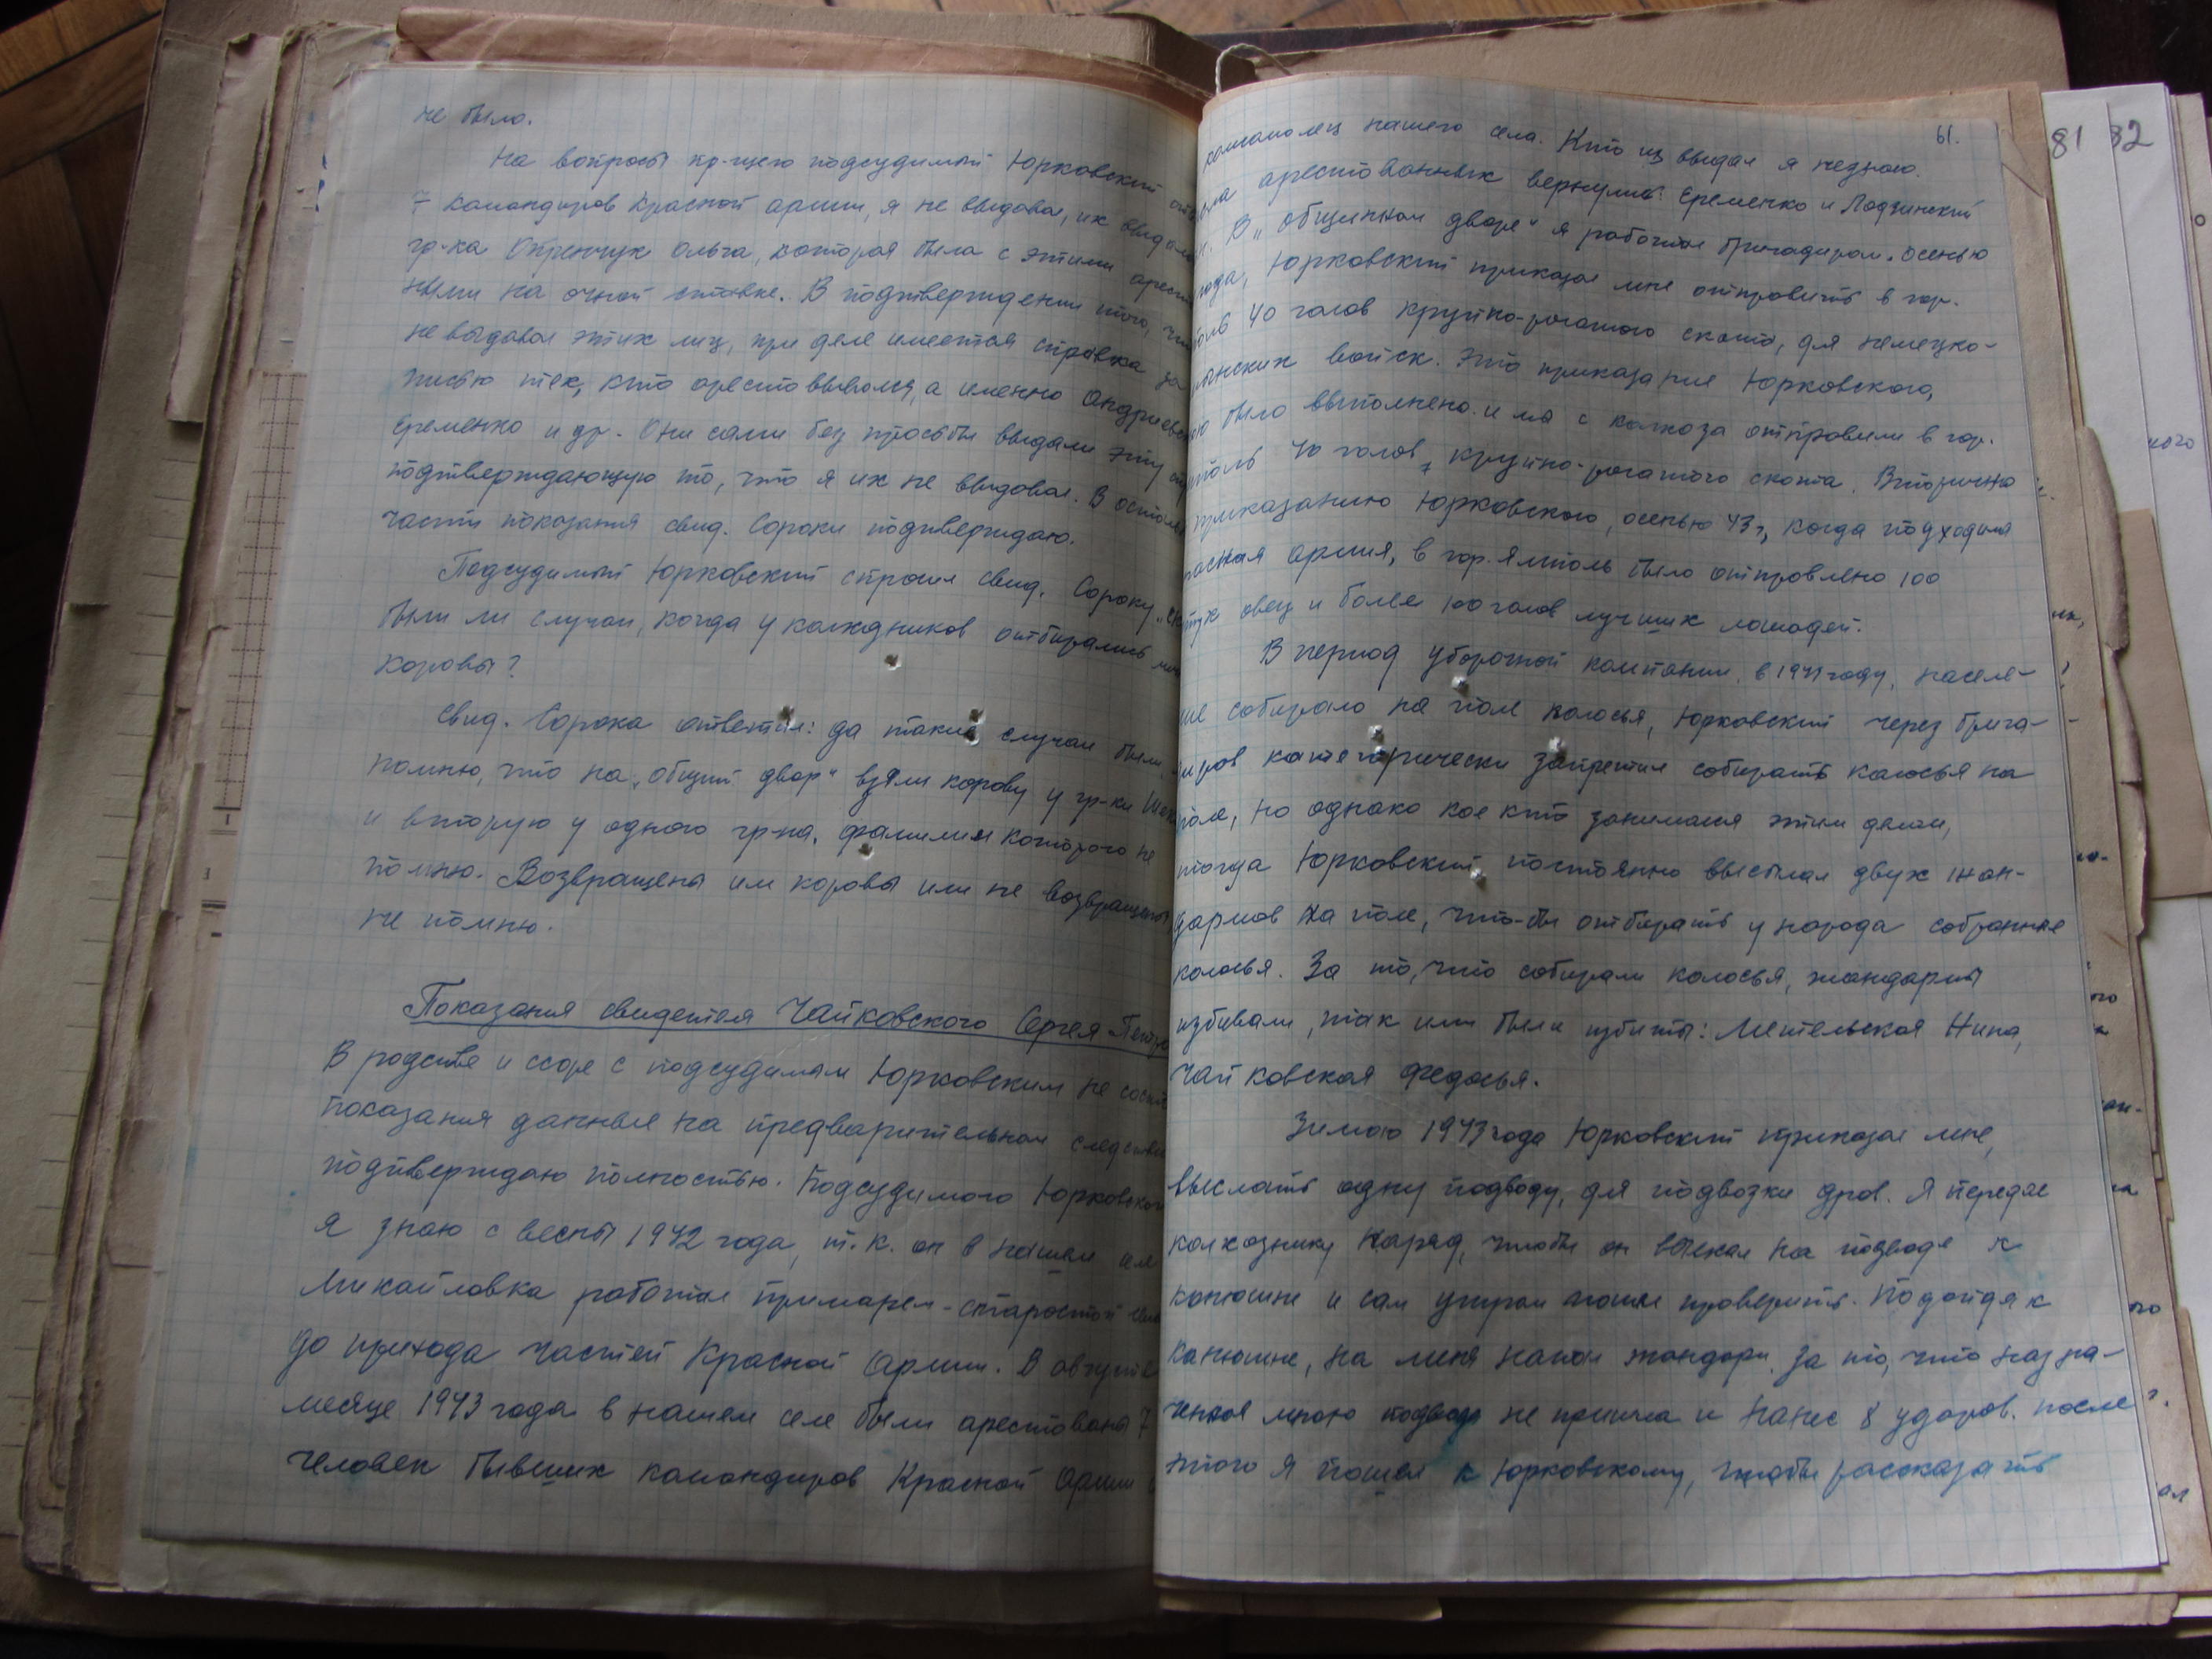 не было.
На вопросы пр-щего подсудимый Юрковский
7 командиров Красной армии, я не выдавал, их выдала
гр-ка Ольга, которая была с этими
ными на очной ставке. В подтверждении того,
не выдавал этих лиц, при деле имеется справка за
писью тех, кто арестовывался, а именно
Еременко и др. Они сами без просьбы выдали эту
подтверждающую то, что я их не выдавал. В
части показания свид. Сороки подтверждаю.
Подсудимый Юрковский спросил свид. Сороку
были ли случаи, когда у колхозников отбирались
коровы?
Свид. Сорока ответил: да такие случаи были.
помню, что на "общий двор" взяли корову у гр-ки
и вторую у одного гр-на, фамилия которого не
помню. Возвращены им коровы или не возвращены
не помню.
Показания свидетеля Чайковского Сергея
В родстве и ссоре с подсудимым Юрковским не
показания данные на предварительном
подтверждаю полностью. Подсудимого
я знаю с весны 1942 года, т.к. он в нашем
Михайловка работал примарем-старостой
до прихода частей Красной Армии. В августе
месяце 1943 года в нашем селе были арестованы 7
человек бывших командиров Красной Армии
61.
81
82
комсомолец нашего села. Кто их выдал я не знаю.
арестованных вернулись: Еременко и Лодзинский
В "общинном дворе" я работал бригадиром. Осенью
года, Юрковский приказал мне отправить в гор.
40 голов крупно-рогатого скота, для немецко-
войск. Это приказание Юрковского,
было выполнено и мы с колхоза отправили в гор.
40 голов крупно-рогатого скота. Вторично
приказанию Юрковского, осенью 43 г, когда подходила
армия, в гор. Ямполь было отправлено 100
овец и более 100 голов лучших лошадей.
В период уборочной компании в 1943 году, населе-
ние собирало на поле колосья, Юрковский через брига-
диров категорически запретил собирать колосья на
поле, но однако кое кто занимался этим делом,
тогда Юрковский постоянно высылал двух жан-
дармов на поле, что-бы отбирать у народа собранные
колосья. За то, что собирали колосья, жандармы
избивали, так ими были избиты: Метельская Нина,
Чайковская Федосья.
Зимою 1943 года Юрковский приказал мне,
выслать одну подводу, для подвозки дров. Я передал
колхознику наряд, чтобы он выехал на подводе к
конюшне и сам утром пошел проверить. Подойдя к
конюшне, на меня напал жандарм за то, что назна-
ченная мною подвода не пришла и нанес 8 ударов. После
этого я пошел к Юрковскому, чтобы рассказать